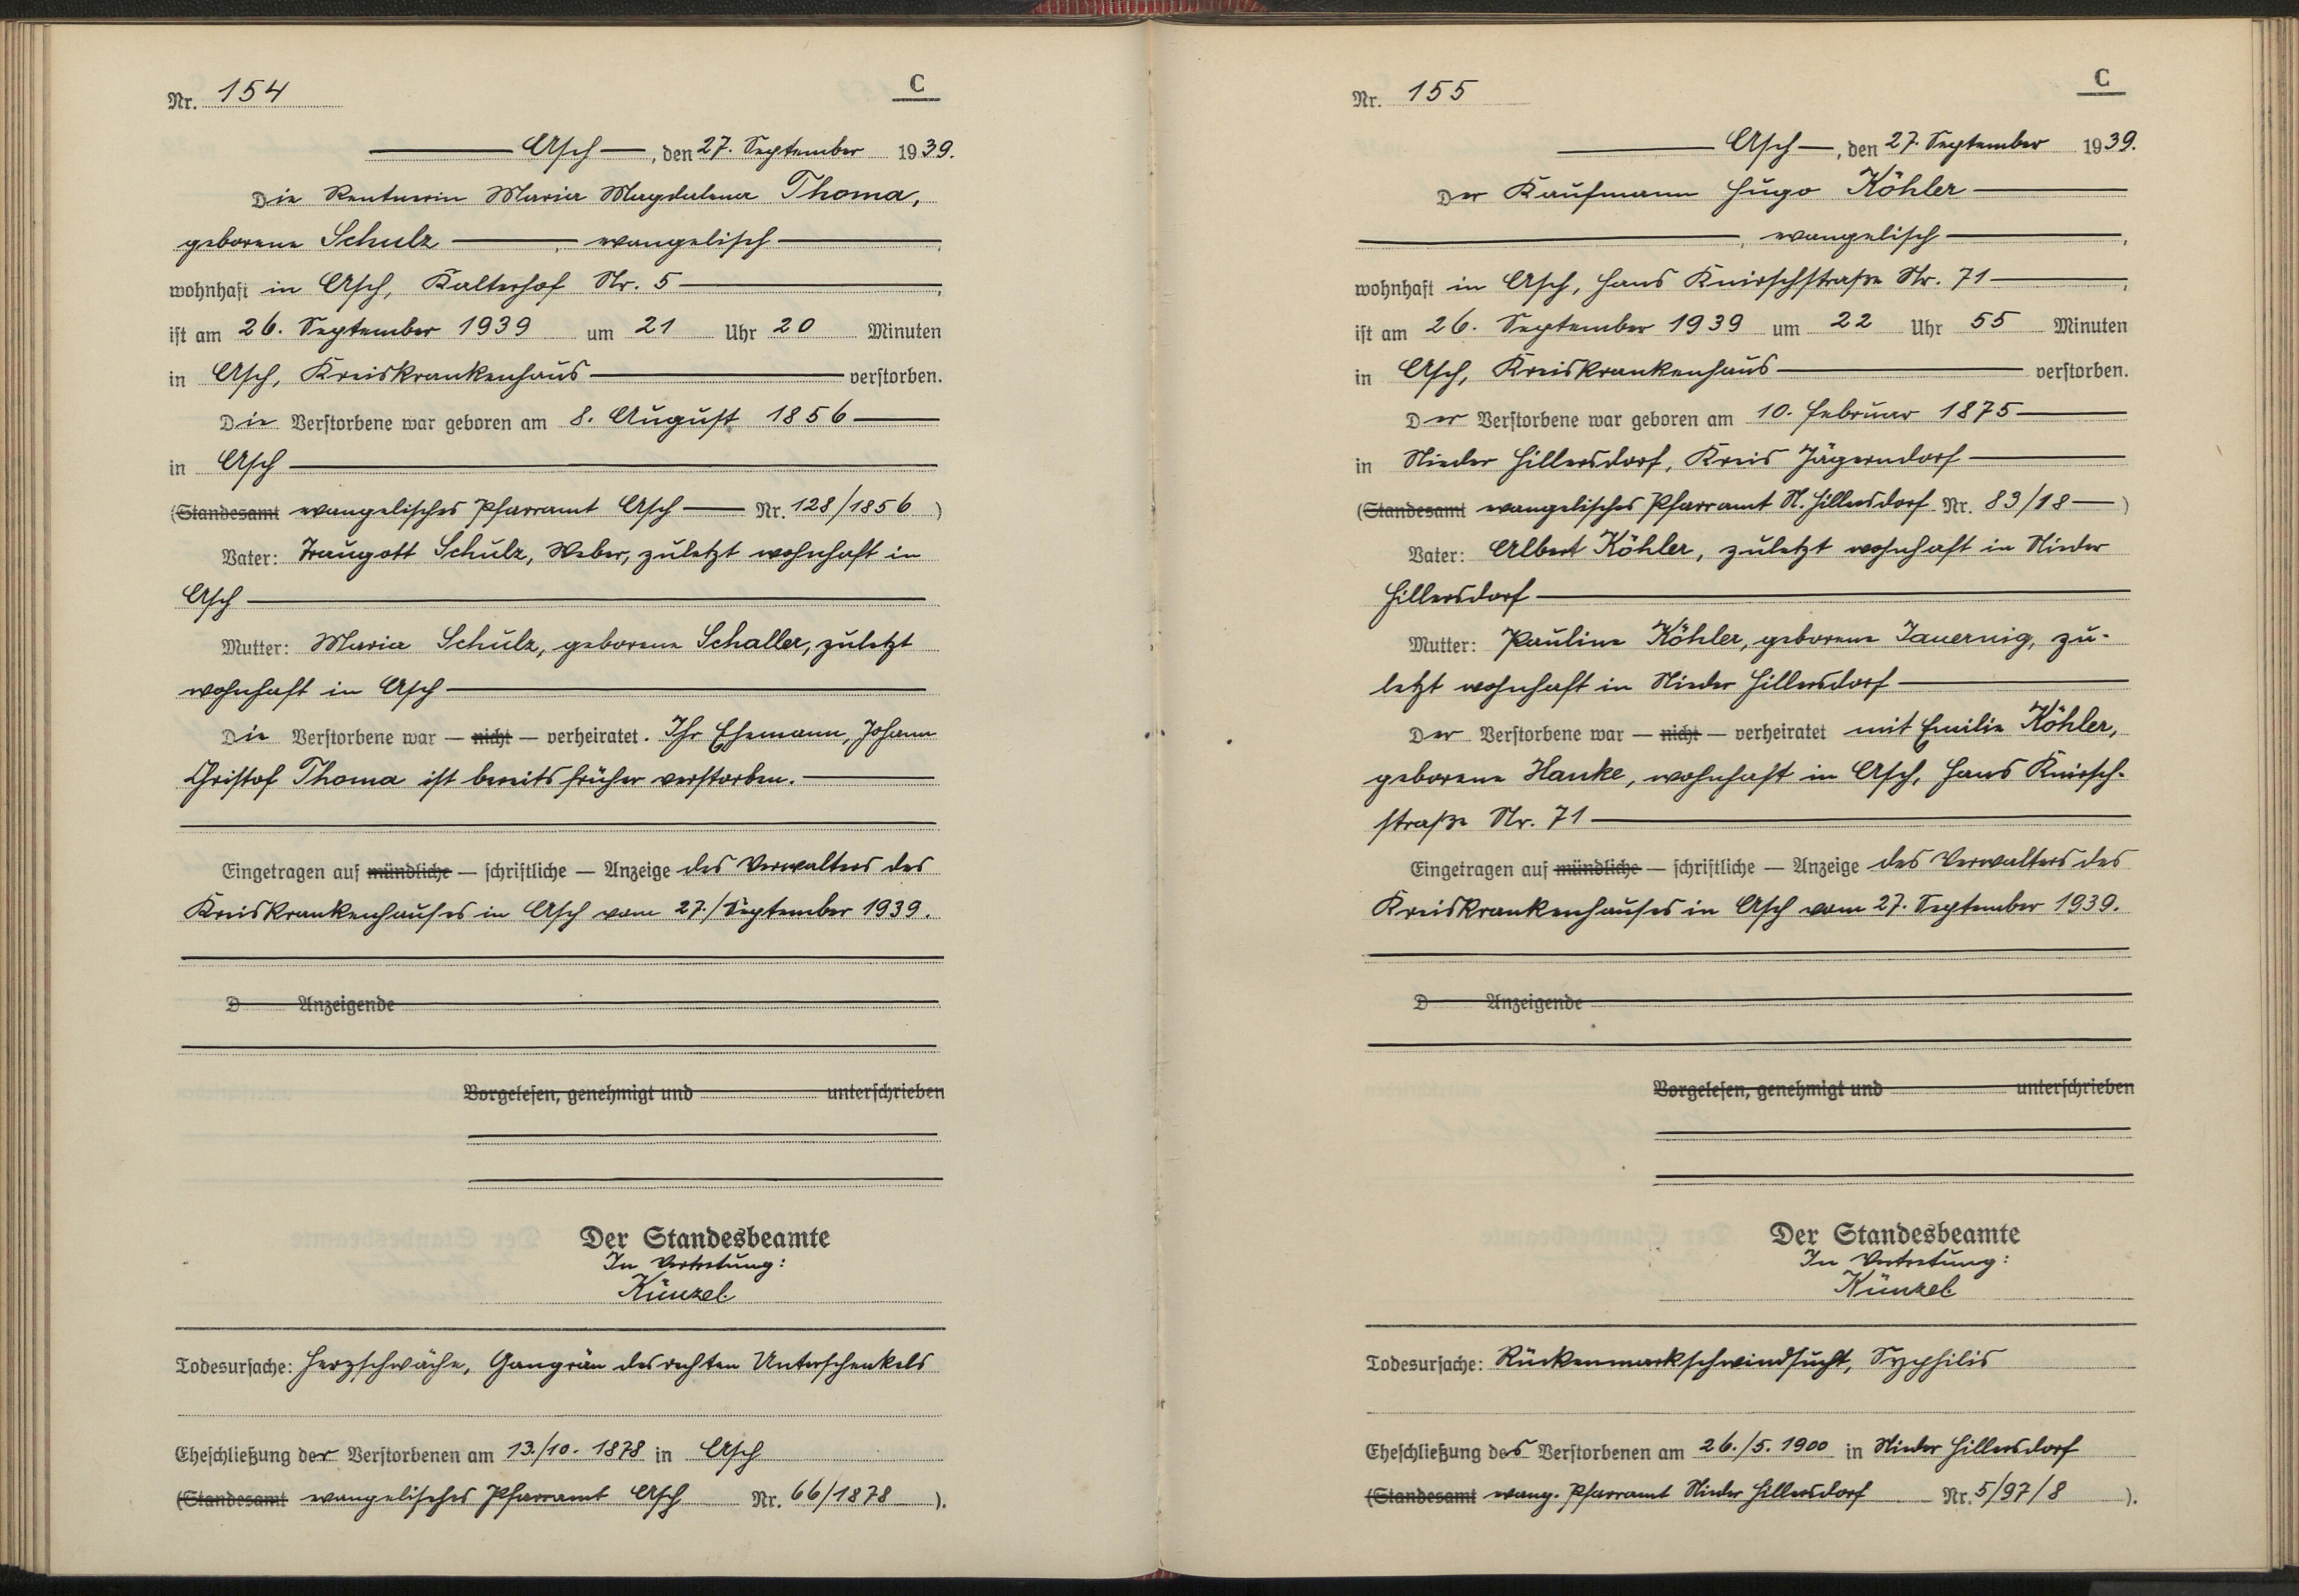 Nr. 154
C
Asch, den 27. September 1939.
Die Rentnerin Maria Magdalena Thoma,
geborene Schulz, evangelisch,
wohnhaft in Asch, Kalterhof Nr. 5,
ist am 26. September 1939 um 21 Uhr 20 Minuten
in Asch, Kreiskrankenhaus verstorben.
Die Verstorbene war geboren am 8. August 1856
in Asch
(Standesamt evangelisches Pfarramt Asch Nr. 128/1856)
Vater: Traugott Schulz, Weber, zuletzt wohnhaft in
Asch
Mutter: Maria Schulz, geborene Schaller, zuletzt
wohnhaft in Asch
Die Verstorbene war — nicht — verheiratet. Ihr Ehemann, Johann
Christof Thoma ist bereits früher verstorben.
Eingetragen auf mündliche — schriftliche — Anzeige des Verwalters des
Kreiskrankenhauses in Asch vom 27. September 1939.
D Anzeigende
Vorgelesen, genehmigt und unterschrieben
Der Standesbeamte
In Vertretung:
Künzel
Todesursache: Herzschwäche, Gangrän des rechten Unterschenkels
Eheschließung der Verstorbenen am 13./10. 1878 in Asch
(Standesamt evangelisches Pfarramt Asch Nr. 66/1878).
Nr. 155
C
Asch, den 27. September 1939.
Der Kaufmann Hugo Köhler
, evangelisch,
wohnhaft in Asch, Hans Knirschstraße Nr. 71,
ist am 26. September 1939 um 22 Uhr 55 Minuten
in Asch, Kreiskrankenhaus verstorben.
Der Verstorbene war geboren am 10. Februar 1875
in Nieder Hillersdorf, Kreis Jägerndorf
(Standesamt evangelisches Pfarramt N. Hillersdorf Nr. 83/18)
Vater: Albert Köhler, zuletzt wohnhaft in Nieder
Hillersdorf
Mutter: Pauline Köhler, geborene Jauernig, zu-
letzt wohnhaft in Nieder Hillersdorf
Der Verstorbene war — nicht — verheiratet mit Emilie Köhler,
geborene Hanke, wohnhaft in Asch, Hans Knirsch-
straße Nr. 71
Eingetragen auf mündliche — schriftliche — Anzeige des Verwalters des
Kreiskrankenhauses in Asch vom 27. September 1939.
D Anzeigende
Vorgelesen, genehmigt und unterschrieben
Der Standesbeamte
In Vertretung:
Künzel
Todesursache: Rückenmarkschwindsucht, Syphilis
Eheschließung des Verstorbenen am 26./5. 1900 in Nieder Hillersdorf
(Standesamt evang. Pfarramt Nieder Hillersdorf Nr. 5/97/8).